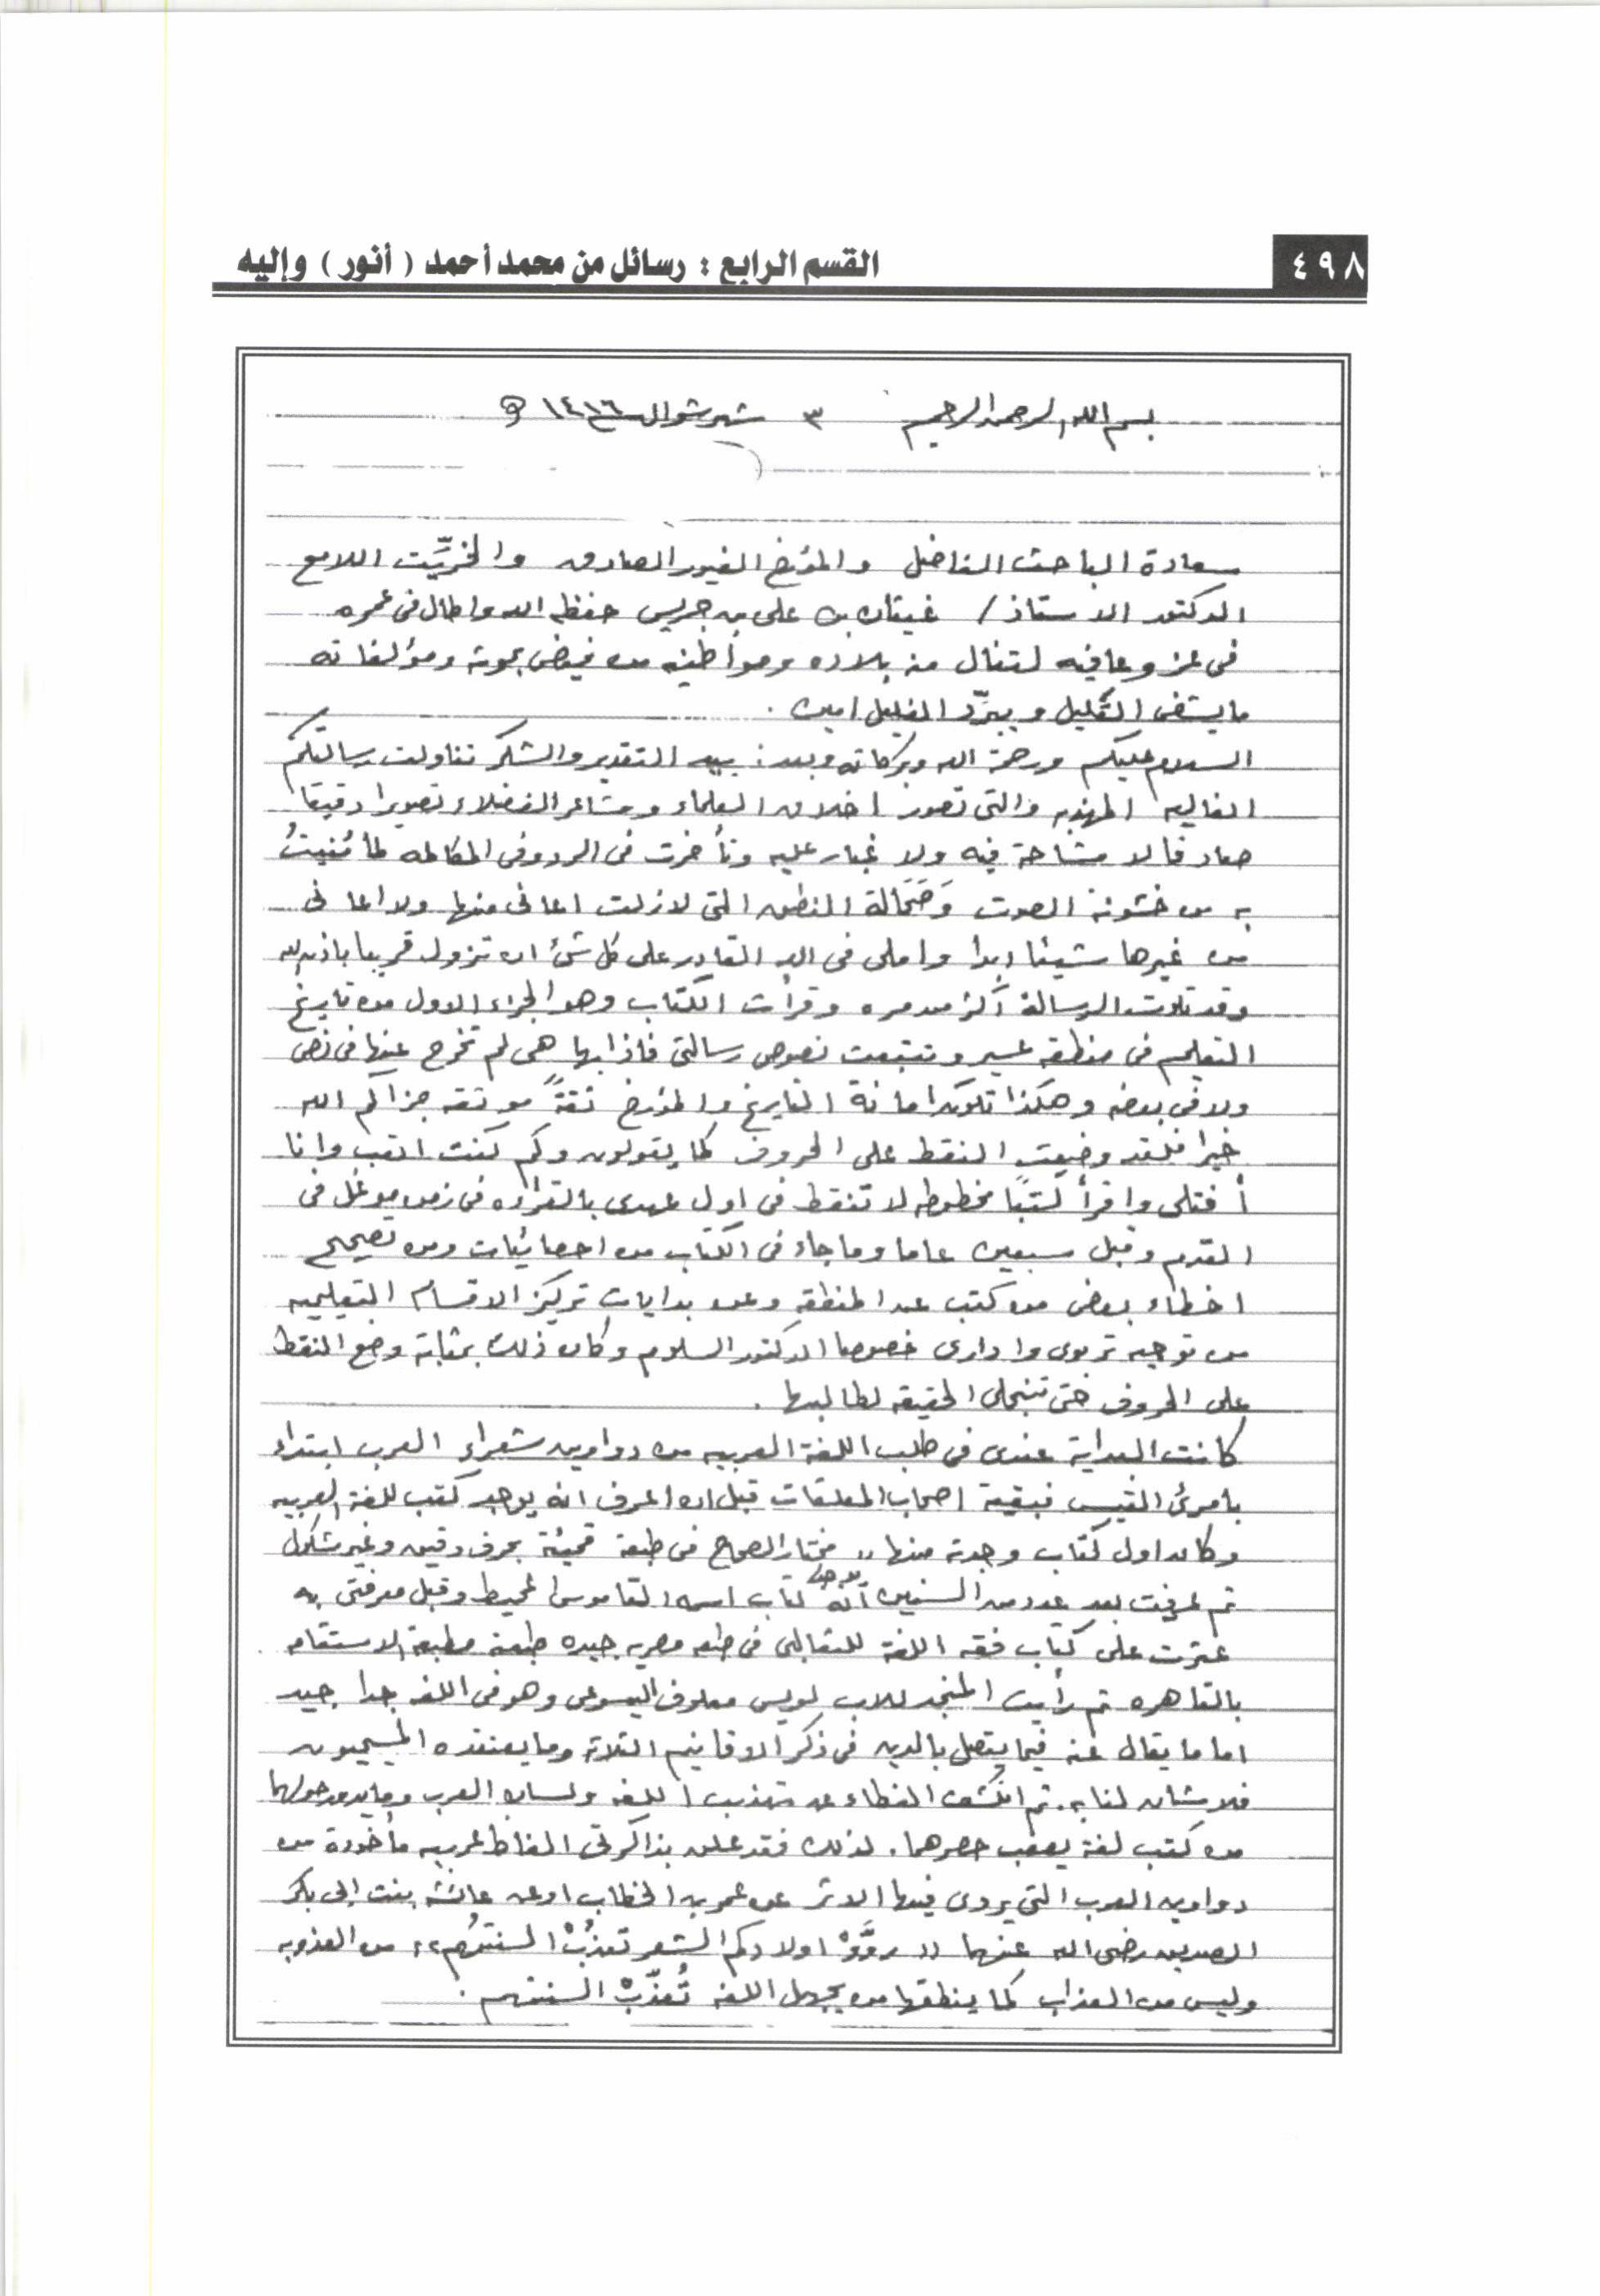 ٤٩٨
القسم الرابع : رسائل من محمد أحمد ( أنور ) وإليه
بسم الله الرحمن الرحيم ٣ شهر شوال ١٤١٦ هـ
سعادة الباحث الفاضل والمؤرخ الغيور الصادق والخرِّيت اللامع
الدكتور الاستاذ / غيثان بن علي بن جريس حفظه الله واطال في عمره
في عز وعافيه لتنال منه بلاده ومواطنيه من فيض بحوثه ومؤلفاته
ما يشفي العليل ويبرّد الغليل امين .
السلام عليكم ورحمة الله وبركاته وبعد : بيد التقدير والشكر تناولت رسالتكم
الغاليه المهذبه والتي تصور اخلاق العلماء ومشاعر الفضلاء تصويرا دقيقا
صادقا لا مشاحة فيه ولا غبار عليه وتأخرت في الرد وفي المكالمه لما مُنيتُ
به من خشونة الصوت وضَحَالة النطق التي لا زلت اعاني منها ولا اعاني
من غيرها شيئا ابدا واملي في الله القادر على كل شئ ان تزول قريبا باذن الله
وقد تلوت الرسالة اكثر من مره وقرأت الكتاب وهو الجزء الاول من تاريخ
التعليم في منطقه عسير وتتبعت نصوص رسالتي فاذا بها هي لم تخرج عنها في نص
ولا في بعضه وهكذا تكون امانة التاريخ والمؤرخ ثقةً موثقه جزاكم الله
خيرا فلقد وضعت النقط على الحروف كما يقولون وكم كنت اتعب وانا
أفتلي واقرأ كتبًا مخطوطه لا تنقط في اول عهدي بالقراءه في زمن موغل في
القدم وقبل سبعين عاما وما جاء في الكتاب من احصائيات ومن تصحيح
اخطاء بعض من كتب عن المنطقه وعن بدايات تركيز الاقسام التعليميه
من توجيه تربوي واداري خصوصا الدكتور السلوم وكان ذلك بمثابة وضع النقط
على الحروف حتى تنجلي الحقيقه لطالبها .
كانت البداية عندي في طلب اللغة العربيه من دواوين شعراء العرب ابتداء
بامرئ القيس فبقية اصحاب المعلقات قبل ان اعرف انه يوجد كتب للغة العربيه
وكان اول كتاب وجدته منها ,, مختار الصحاح في طبعة قميئة بحرف دقيق وغير مشكول
ثم عرفت بعد عدد من السنين أنه يوجد كتاب اسمه القاموس المحيط وقبل معرفتي به
عثرت على كتاب فقه اللغة للثعالبي في طبعه مصريه جيده طبعة مطبعة الاستقامه
بالقاهره ثم رأيت المنجد للاب لويس معلوف اليسوعي وهو في اللغه جدا جيد
اما ما يقال عنه فيما يتصل بالدين في ذكر الاقانيم الثلاثه وما يعتقده المسيحيون
فلا شان لنا به . ثم انكشف الغطاء عن تهذيب اللغه ولسان العرب وما يدور حولهما
من كتب لغة يصعب حصرهما . لذلك فقد علق بذاكرتي الفاظ عربيه مأخوذة من
دواوين العرب التي يروى فيها الاثر عن عمر بن الخطاب او عن عائشه بنت ابي بكر
الصديق رضي الله عنهما ,, روَّوْا اولادكم الشعر تعذُبْ السنتُهم ,, من العذوبه
وليس من العذاب كما ينطقها من يجهل اللغه تُعذّبْ السنتهم .